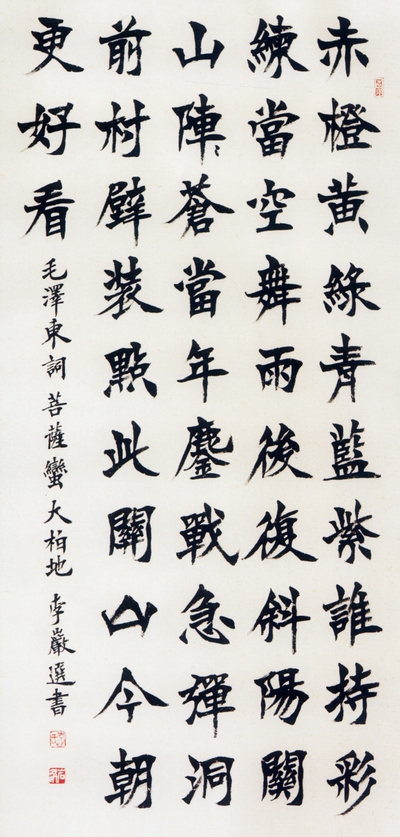 赤橙黃綠青藍紫誰持彩
練當空舞雨後復斜陽關
山陣〻蒼當年鏖戰急彈洞
前村壁裝點此關山今朝
更好看
毛澤東詞菩薩蠻大柏地 李巖選書